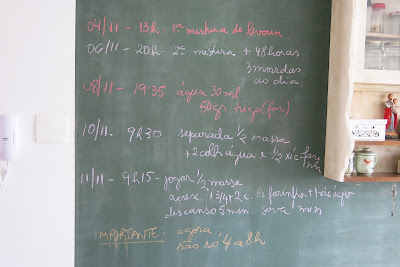 04/11 - 13h - 1ª mistura do levain
06/11 - 20h - 2ª mistura + 48horas
3 mexidas
ao dia.
08/11 - 19:35 água 30 ml.
50gr. trigo (far)
10/11 - 9h30 separada 1/2 massa
+2 colh água e 1/2 xíc
11/11 - 9h15 - jogar 1/2 massa
acresc. 1 3/4 + 2 c. de farinha +
descanso 5 min. sova min
IMPORTANTE: agora
são só 4 a 8h